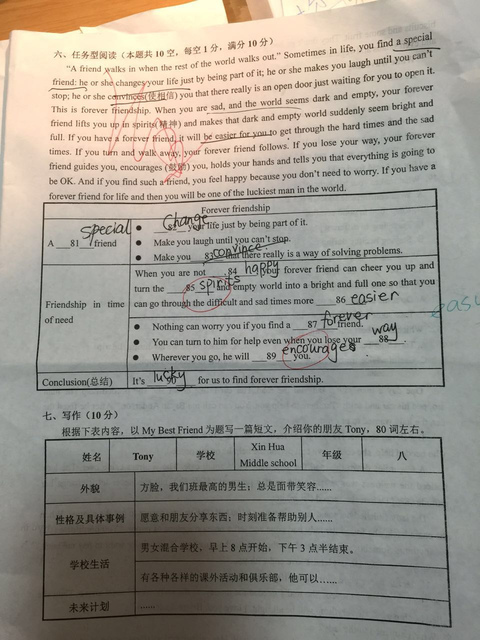 六、任务型阅读（本题共10空，每空1分，满分10分）
"A friend walks in when the rest of the world walks out." Sometimes in life, you find a special
friend: he or she changes your life just by being part of it; he or she makes you laugh until you can't
stop; he or she convinces(使相信) you that there really is an open door just waiting for you to open it.
This is forever friendship. When you are sad, and the world seems dark and empty, your forever
friend lifts you up in spirits(精神) and makes that dark and empty world suddenly seem bright and
full. If you have a forever friend, it will be easier for you to get through the hard times and the sad
times. If you turn and walk away, your forever friend follows. If you lose your way, your forever
friend guides you, encourages (鼓励) you, holds your hands and tells you that everything is going to
be OK. And if you find such a friend, you feel happy because you don't need to worry. If you have a
forever friend for life and then you will be one of the luckiest man in the world.
Forever friendship
A 81 friend
special
● 82 your life just by being part of it.
Change
● Make you laugh until you can't stop.
● Make you 83 that there really is a way of solving problems.
convince
Friendship in time
of need
When you are not 84 , your forever friend can cheer you up and
happy
turn the 85 and empty world into a bright and full one so that you
spirits
can go through the difficult and sad times more 86
easier
● Nothing can worry you if you find a 87 friend.
forever
● You can turn to him for help even when you lose your 88 .
way
● Wherever you go, he will 89 you.
encourages
Conclusion(总结)
It's 90 for us to find forever friendship.
lucky
七、写作（10分）
根据下表内容，以 My Best Friend 为题写一篇短文，介绍你的朋友 Tony，80词左右。
姓名 Tony 学校 Xin Hua Middle school 年级 八
外貌 方脸，我们班最高的男生；总是面带笑容……
性格及具体事例 愿意和朋友分享东西；时刻准备帮助别人……
学校生活
男女混合学校，早上8点开始，下午3点半结束。
有各种各样的课外活动和俱乐部，他可以……
未来计划 ……